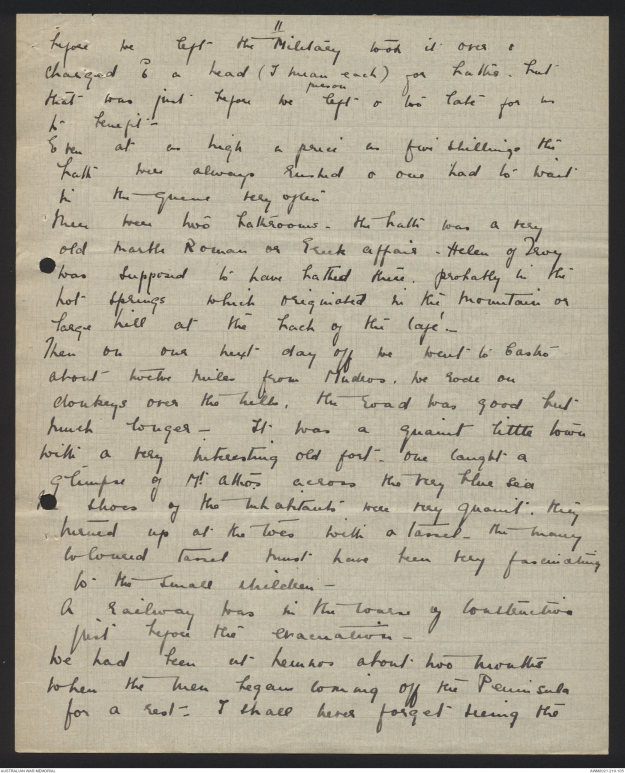 11
before we left the Military took it over &
charged 6 a head (I mean each) for baths. but
person
that was just before we left & too late for us
to benefit -
Even at as high a price as five shillings the
bath were always rushed & one had to wait
in the queue very often
There were two bathrooms - the bath was a very
old marble Roman or Greek affair - Helen of Troy
was supposed to have bathed there. probably in the
hot springs which originated in the mountain or
large hill at the back of the café -
Then on our next day off we went to Castro
about twelve miles from Mudros. we rode on
donkeys over the hills. the road was good but
much longer - It was a quaint little town
with a very interesting old fort - one caught a
glimpse of Mt. Athos across the very blue sea
The shoes of the inhabitants were very quaint. they
turned up at the toes with a tassel - the many
coloured tassel must have been very fascinating
to the small children -
A railway was in the course of construction
just before the evacuation -
We had been at Lemnos about two months
when the men began coming off the Peninsula
for a rest - I shall never forget seeing the
AUSTRALIAN WAR MEMORIAL